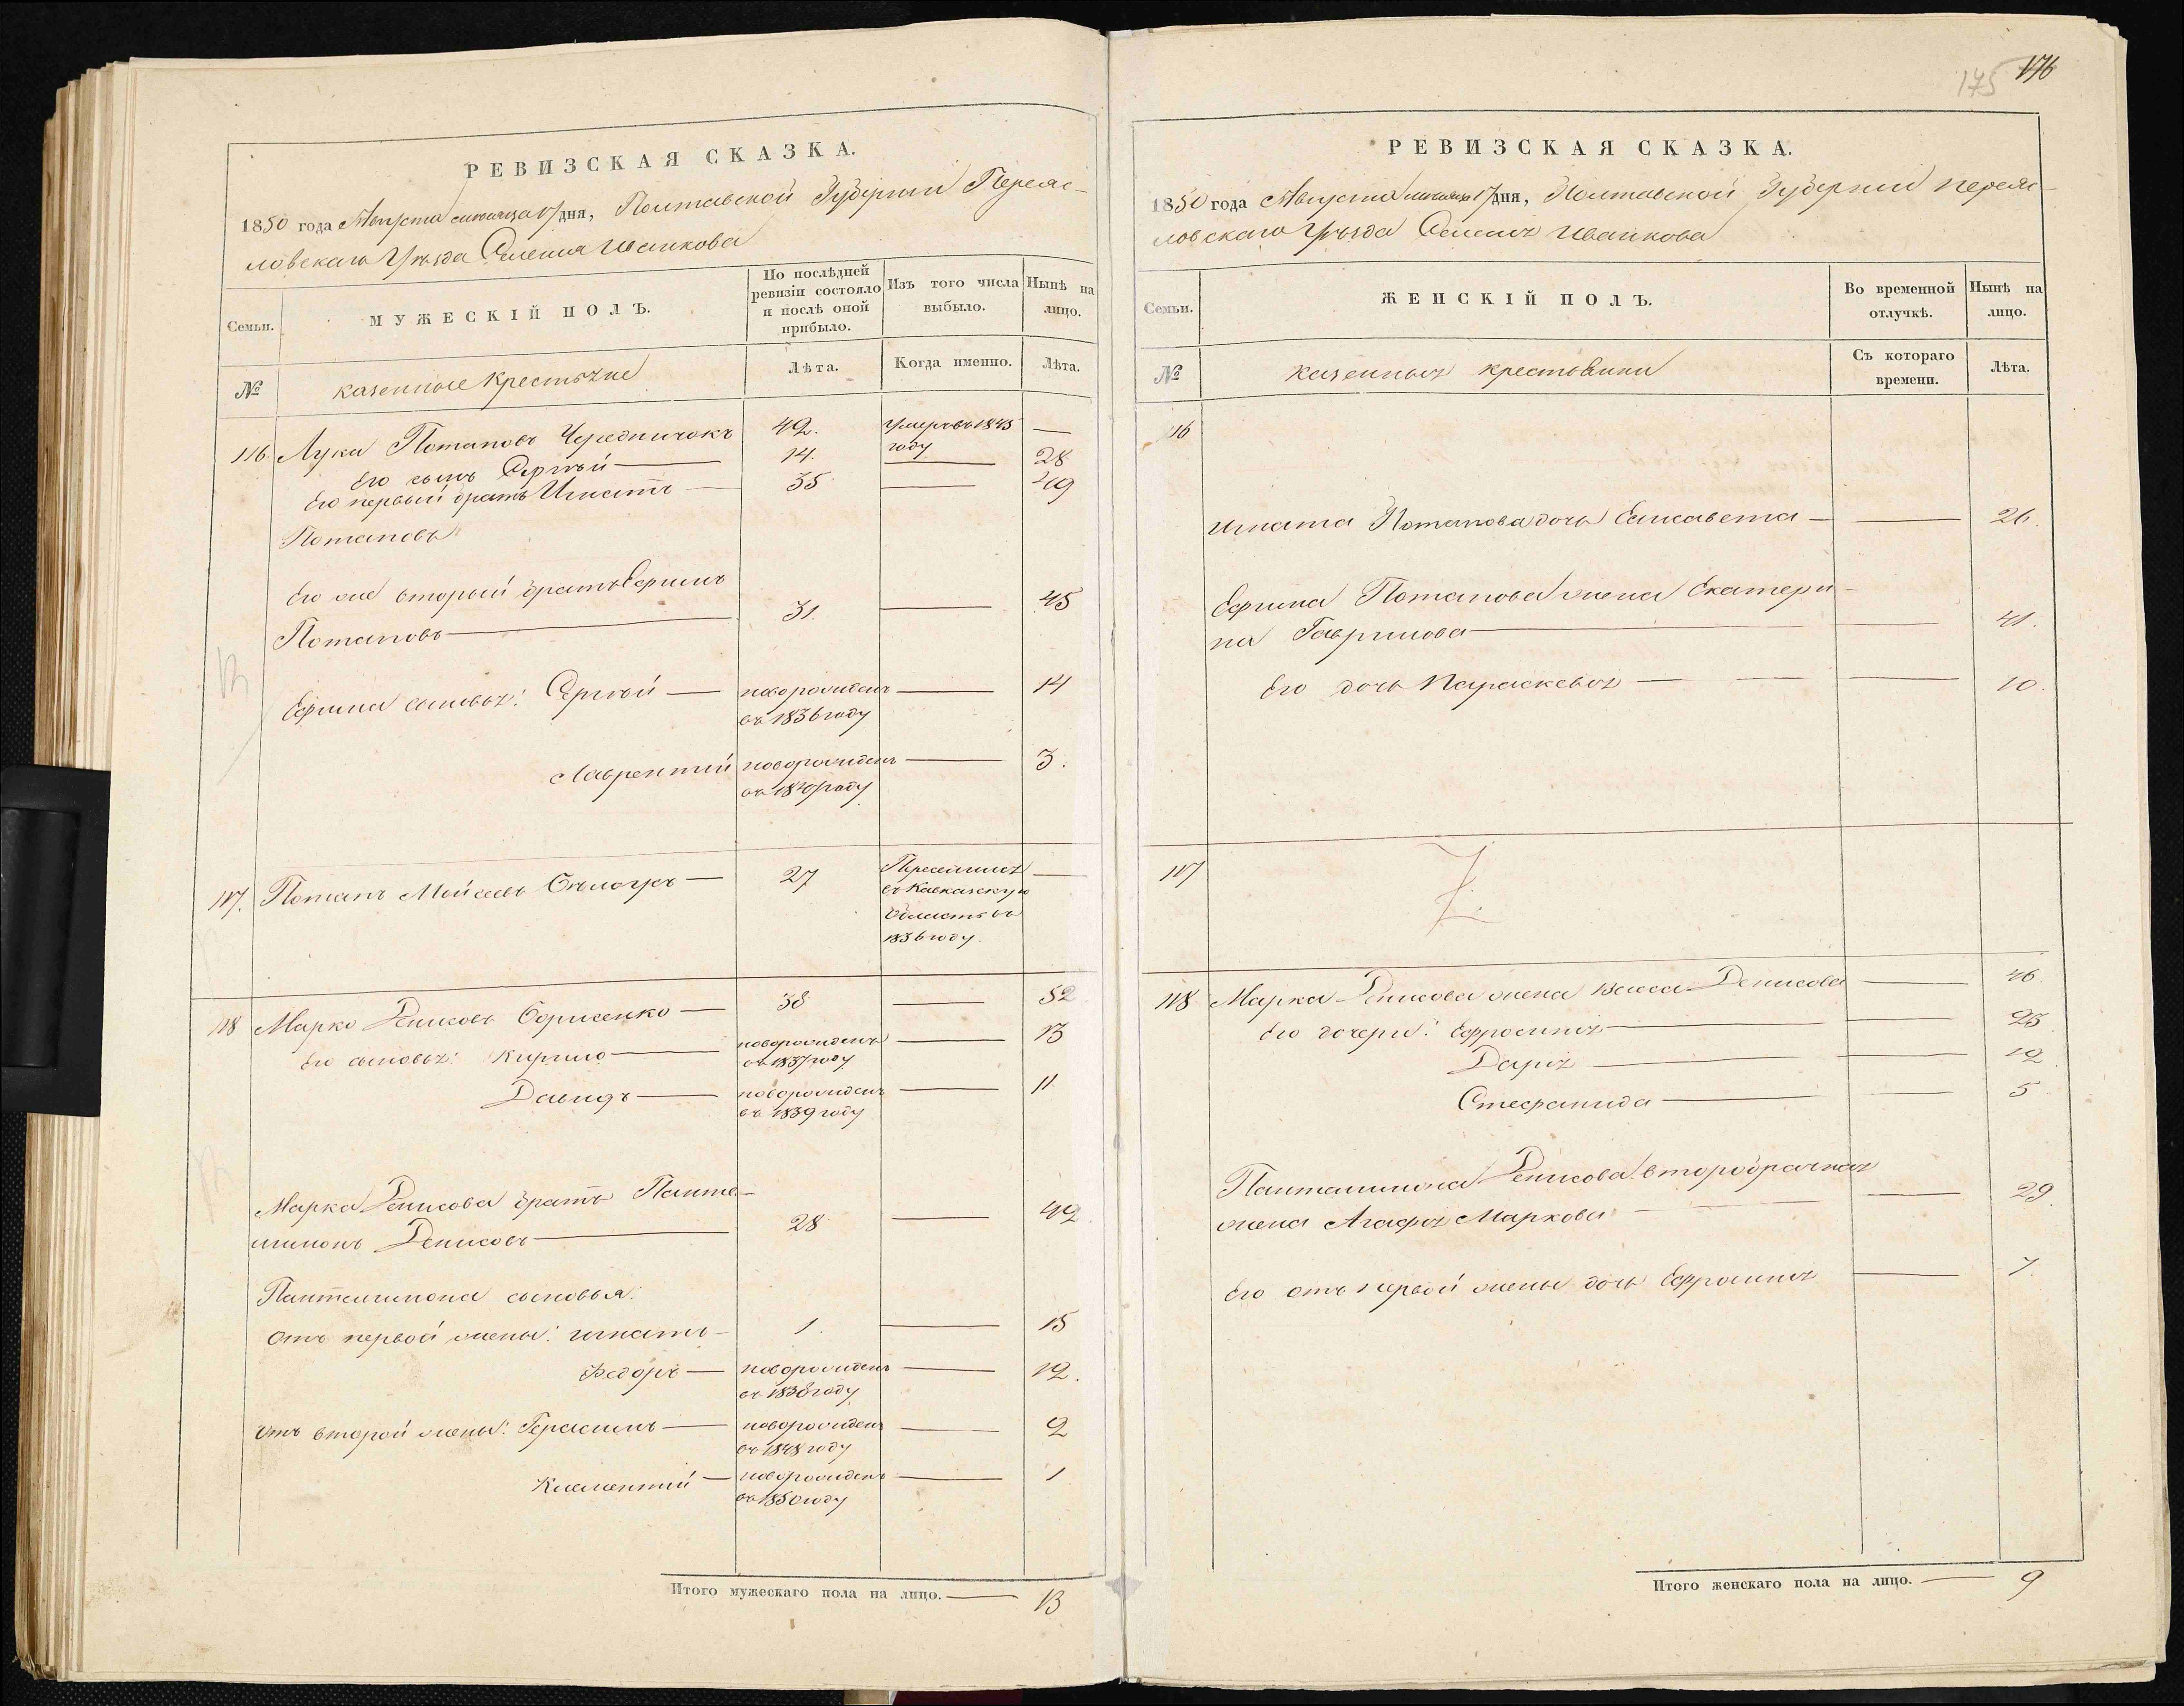 РЕВИЗСКАЯ СКАЗКА.
1850 года Августа месяца 17 дня, Полтавской Губернии Переяс-
ловскаго Уѣзда Селенія Иванкова
Семьи.
МУЖЕСКІЙ ПОЛЪ.
По послѣдней ревизіи состояло и послѣ оной прибыло.
Изъ того числа выбыло.
Нынѣ на лицо.
№
казенные крестьяне
Лѣта.
Когда именно.
Лѣта.
116. Лука Потаповъ Чередничокъ 42. умеръ въ 1845 году —
Его сынъ Сергѣй — 14. — 28
Его первый братъ Игнатъ — 35 — 49
Потаповъ
Его же второй братъ Ефимъ
Потаповъ — 31. — 45
Ефима сыновья: Сергѣй — новорожденъ — 14
въ 1836 году
Лаврентій новорожденъ — 3.
въ 1847 году
117. Потапъ Мойсеевъ — 27 Переселился —
въ Кавказскую
Область въ
1836 году.
118 Марко Денисовъ Борисенко — 38 — 52
Его сыновья: Кирило — новорожденъ — 13
въ 1837 году
Давидъ — новорожденъ — 11
въ 1839 году
Марка Денисова братъ Панте-
лимонъ Денисовъ — 28 — 42
Пантелимона сыновья:
Отъ первой жены: Игнатъ — 1. — 15
Федоръ — новорожденъ — 12.
въ 1838 году
Отъ второй жены: Герасимъ — новорожденъ — 2
въ 1848 году
Климентій — новорожденъ — 1
въ 1850 году
Итого мужескаго пола на лицо. — 13
175 176
РЕВИЗСКАЯ СКАЗКА.
1850 года Августа месяца 17 дня, Полтавской Губернии Переяс-
ловскаго Уѣзда Селенія Иванкова
Семьи.
ЖЕНСКІЙ ПОЛЪ.
Во временной отлучкѣ.
Нынѣ на лицо.
№
казенныя крестьянки
Съ котораго времени.
Лѣта.
116
Игната Потапова дочь Елисавета — — 26.
Ефима Потапова жена Екатери-
на Гаврилова — — 41.
Его дочь Параскевія — — — 10.
117
118 Марка Денисова жена Васса Денисова — 46
Его дочери: Ефросинія — — 25
Дарія — — 12
Стефанида — — 5
Пантелимона Денисова второбрачная
жена Агафія Маркова — — 29.
Его отъ первой жены дочь Ефросинія — 7.
Итого женскаго пола на лицо. — 9